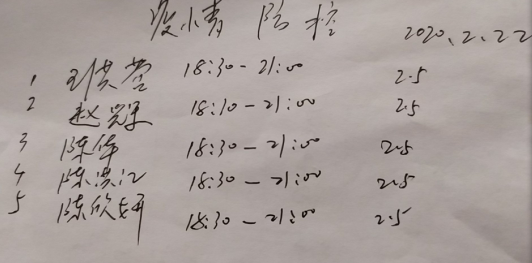 防控 2020.2.22
1 王洪营 18:30-21:00 2.5
2 赵冠军 18:10-21:00 2.5
3 陈华 18:30-21:00 2.5
4 陈洪江 18:30-21:00 2.5
5 陈欣妍 18:30-21:00 2.5